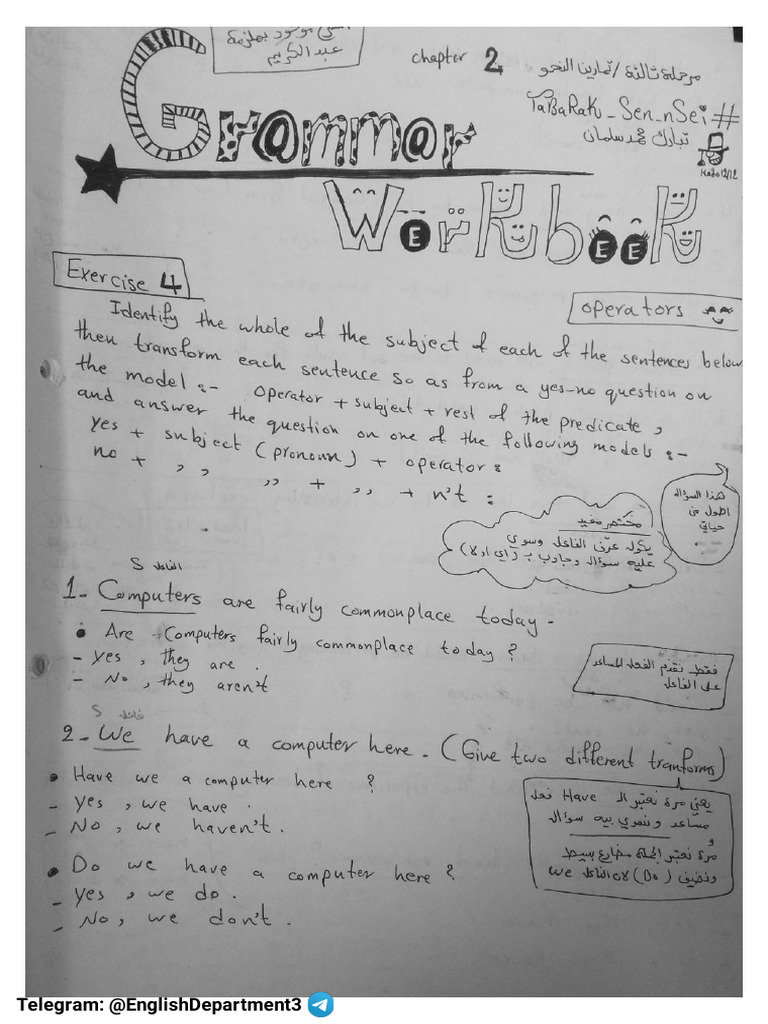 موجود بملزمة
عبد الكريم
chapter 2
مرحلة ثالثة / تمارين النحو
TaBaRaK_Sen_nSei #
تبارك محمد سلمان
Grammar
Workbook
Exercise 4
operators
Identify the whole of the subject of each of the sentences below
then transform each sentence so as from a yes-no question on
the model :- operator + subject + rest of the predicate ,
and answer the question on one of the following models :-
yes + subject (pronoun) + operator :
no + ,, ,, + ,, + n't :
هذا السؤال
اطول من
حياتي
مختصر مفيد
يكول عرف الفاعل وسوي
عليه سؤال وجاوب بـ (اي او لا)
S الفاعل
1- Computers are fairly commonplace today -
• Are Computers fairly commonplace today ?
- Yes , they are .
- No , they aren't
فقط نقدم الفعل المساعد
على الفاعل
S فاعل
2- We have a computer here - (Give two different tranforms)
• Have we a computer here ?
- Yes , we have .
- No , we haven't .
يعني مرة نعتبر الـ Have فعل
مساعد ونسوي بيه سؤال
و
مرة نعتبر الجملة مضارع بسيط
ونضيف (Do) لان الفاعل we
• Do we have a computer here ?
- Yes , we do .
- No , we don't .
Telegram: @EnglishDepartment3